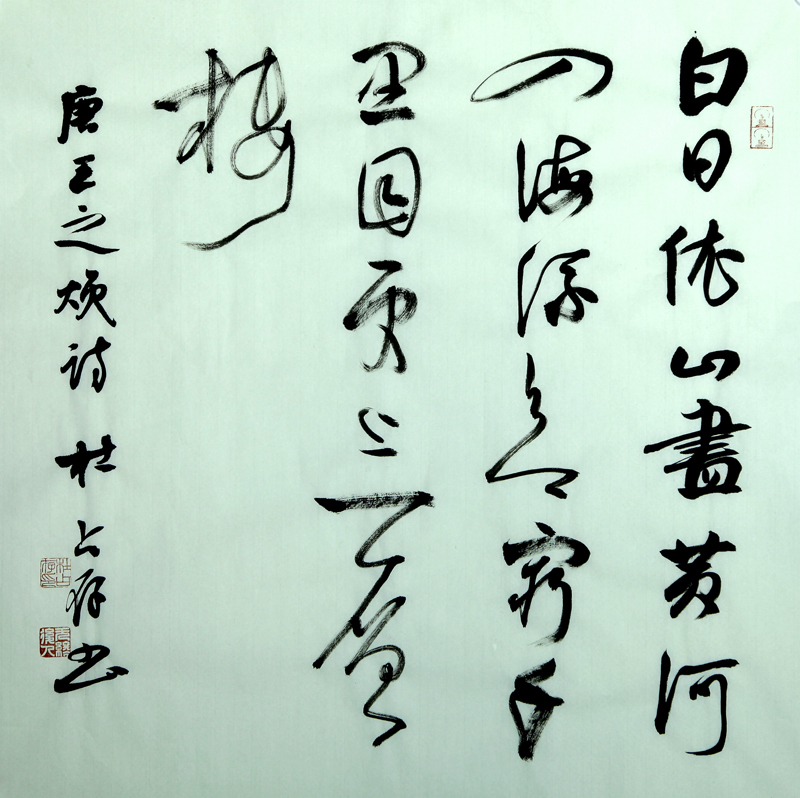 白日依山盡黄河
入海流欲窮千
里目更上一層
楼
唐王之焕诗 杜占存书